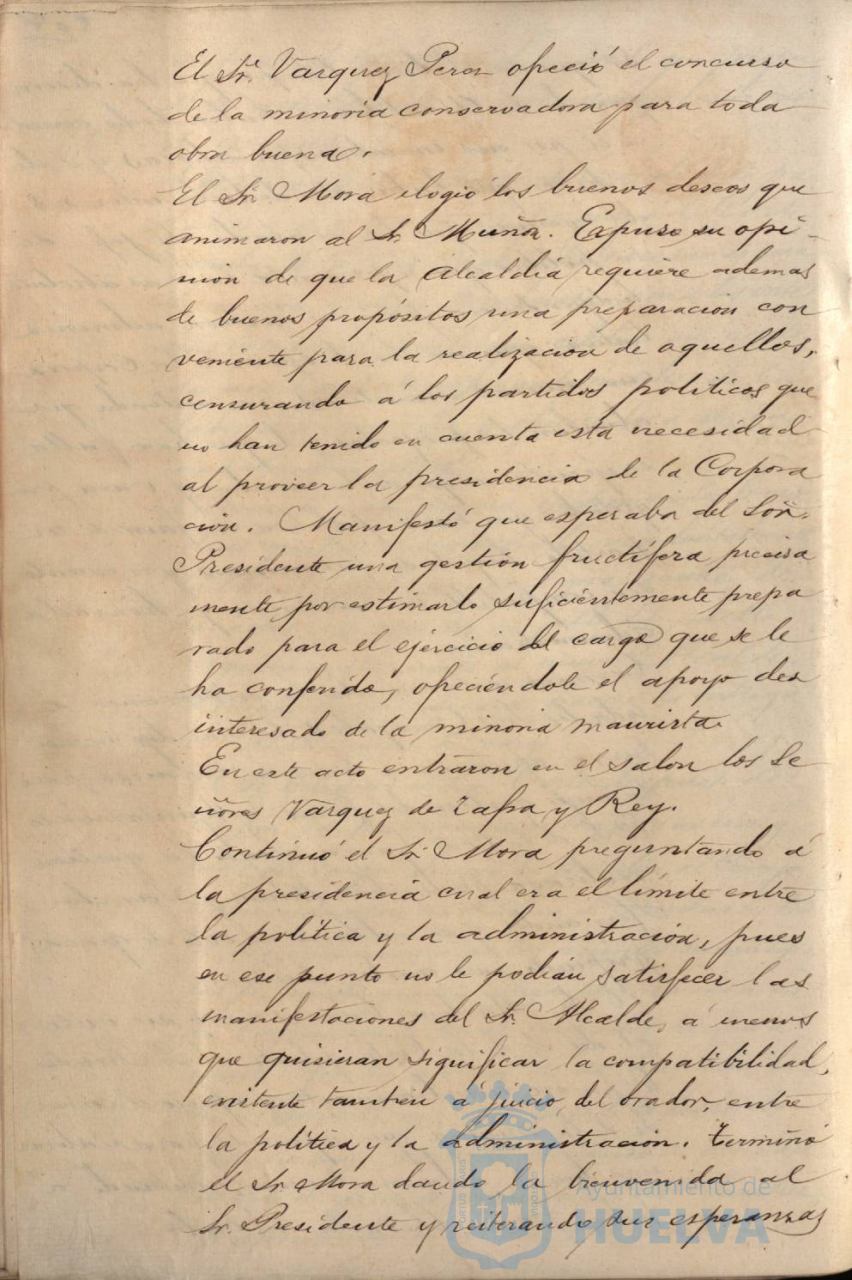 El Sr. Vazquez Perez ofreció el concurso
de la minoria conservadora para toda
obra buena.
El Sr. Mora elogió los buenos deseos que
animaron al Sr. Muñoz. Expuso su opi-
nion de que la Alcaldia requiere ademas
de buenos propósitos una preparacion con
veniente para la realizacion de aquellos,
censurando á los partidos politicos que
no han tenido en cuenta esta necesidad
al proveer la presidencia de la Corpora
ción. Manifestó que esperaba del Señ.
Presidente una gestión fructífera precisa
mente por estimarlo suficientemente prepa
rado para el ejercicio del cargo que se le
ha conferido, ofreciéndole el apoyo des
interesado de la minoria maurista.
En este acto entraron en el salon los Se
ñores Vazquez de Zafra y Rey.
Continuó el Sr. Mora preguntando á
la presidencia cual era el límite entre
la política y la administración, pues
en ese punto no le podían satisfacer las
manifestaciones del Sr. Alcalde, á menos
que quisieran significar la compatibilidad,
existente tambien á juicio del orador, entre
la política y la administración. Terminó
el Sr. Mora dando la bienvenida al
Sr. Presidente y reiterando sus esperanzas
Ayuntamiento de
HUELVA